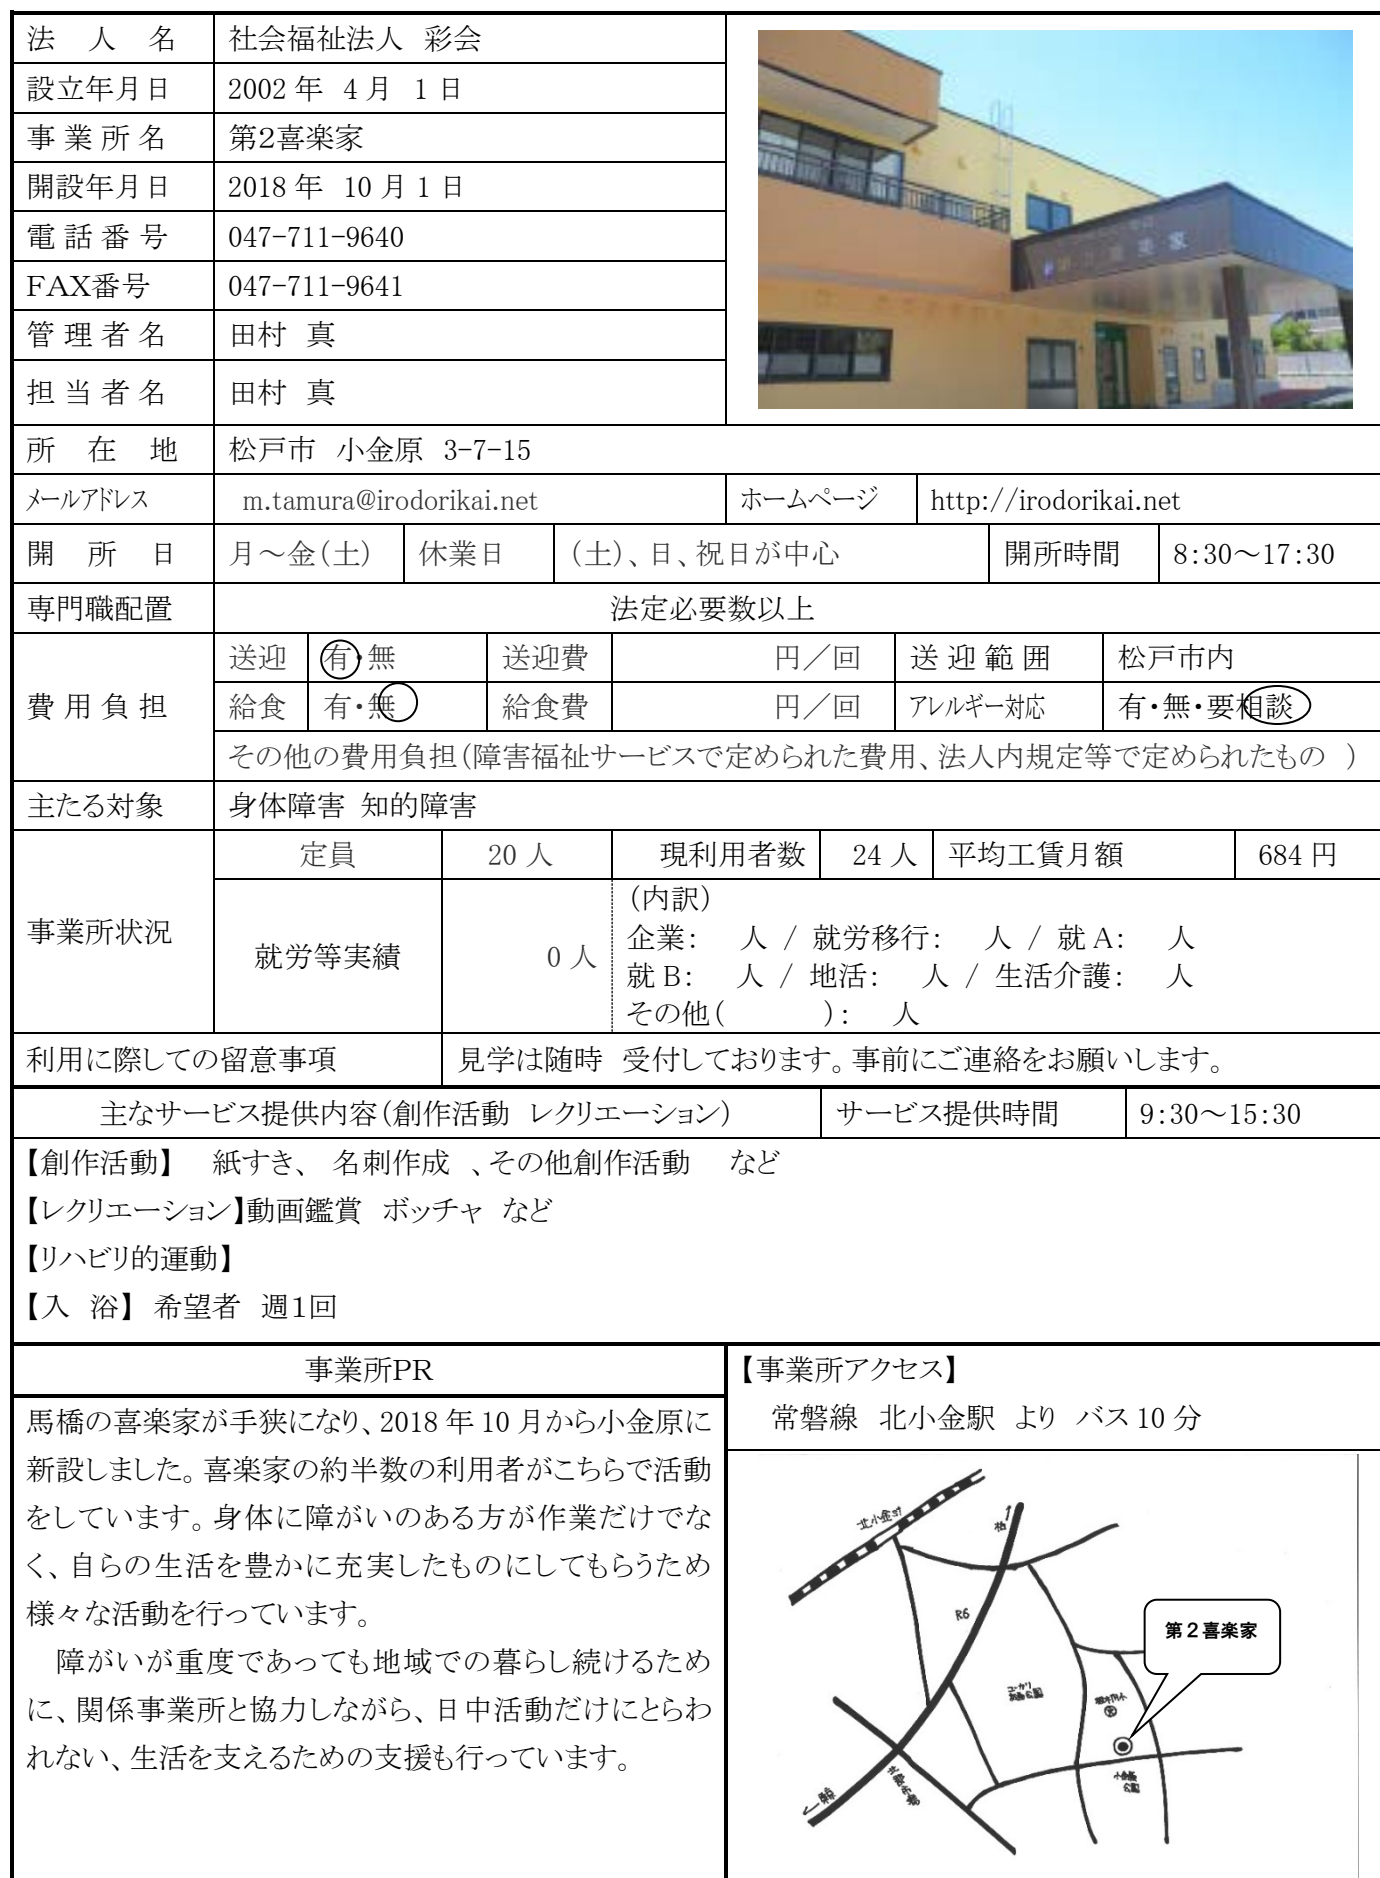 法　人　名　社会福祉法人　彩会
設立年月日　2002年　4月　1日
事業所名　第2喜楽家
開設年月日　2018年　10月1日
電話番号　047-711-9640
FAX番号　047-711-9641
管理者名　田村　真
担当者名　田村　真
所　在　地　松戸市　小金原　3-7-15
メールアドレス　m.tamura@irodorikai.net　ホームページ　http://irodorikai.net
開　所　日　月～金(土)　休業日　(土)、日、祝日が中心　開所時間　8:30～17:30
専門職配置　法定必要数以上
費用負担
送迎　有・無　送迎費　円／回　送迎範囲　松戸市内
給食　有・無　給食費　円／回　アレルギー対応　有・無・要相談
その他の費用負担(障害福祉サービスで定められた費用、法人内規定等で定められたもの　)
主たる対象　身体障害　知的障害
事業所状況
定員　20人　現利用者数　24人　平均工賃月額　684円
就労等実績　0人
(内訳)
企業：　人 / 就労移行：　人 / 就A：　人
就B：　人 / 地活：　人 / 生活介護：　人
その他(　　　)：　人
利用に際しての留意事項　見学は随時　受付しております。事前にご連絡をお願いします。
主なサービス提供内容(創作活動　レクリエーション)　サービス提供時間　9:30～15:30
【創作活動】　紙すき、　名刺作成　、その他創作活動　など
【レクリエーション】動画鑑賞　ボッチャ　など
【リハビリ的運動】
【入　浴】　希望者　週1回
事業所PR
馬橋の喜楽家が手狭になり、2018年10月から小金原に
新設しました。喜楽家の約半数の利用者がこちらで活動
をしています。身体に障がいのある方が作業だけでな
く、自らの生活を豊かに充実したものにしてもらうため
様々な活動を行っています。
　障がいが重度であっても地域での暮らし続けるため
に、関係事業所と協力しながら、日中活動だけにとらわ
れない、生活を支えるための支援も行っています。
【事業所アクセス】
常磐線　北小金駅　より　バス10分
北小金
柏
R6
第2喜楽家
小金原
公園